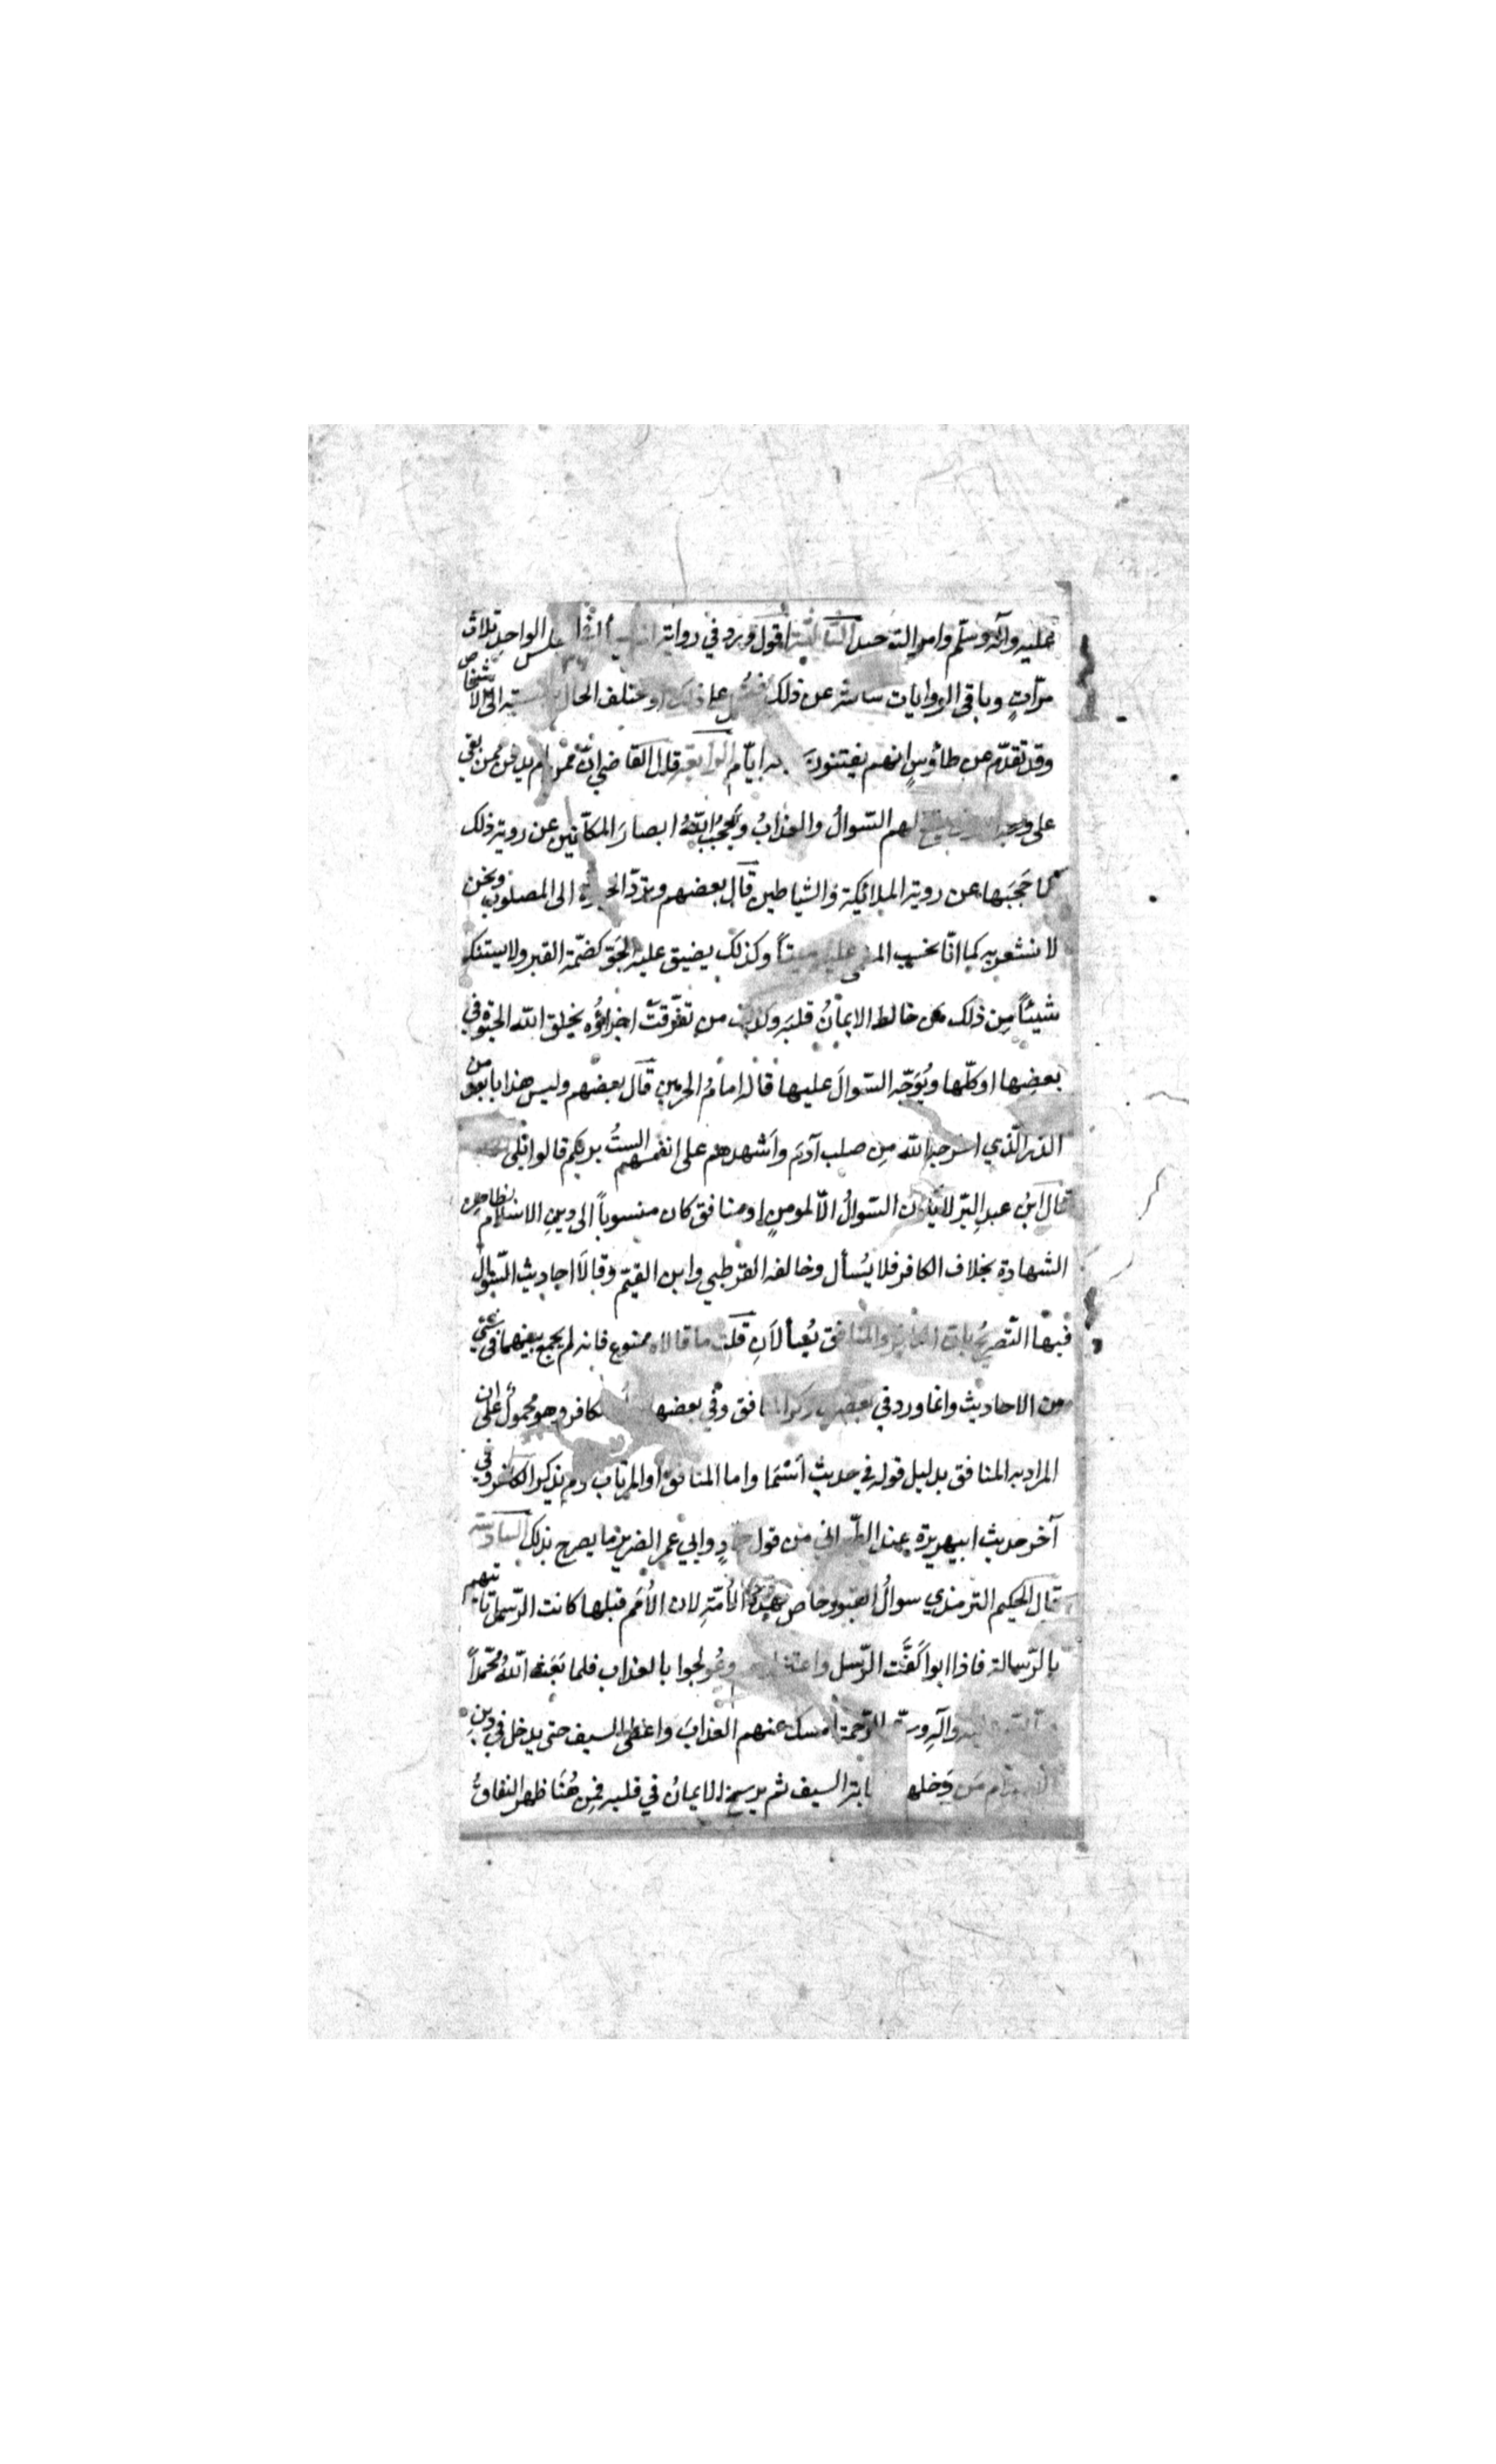 عليه وآله وسلّم وامراته حسن الثالثة اقول ورد في رواية المجلس الواحد ثلاث
مرّاتٍ وباقي الروايات ساكتة عن ذلك على ذلك او يختلف الحال الى الاشخاص
وقد تقدّم عن طاؤسٍ انهم يفتنون ايام الرابعة قال القاضي انّ ممن لم يدفن ممن بقي
على وجه يقع لهم السّوالُ والعذابُ ويَحجُبُ اللّهُ ابصارَ المكلّفين عن روية ذلك
كما حَجَبَها عن روية الملائكة والشياطين قال بعضهم وتردّ الحيوة الى المصلوب ونحن
لا نشعر به كما انّا نحسب المغمى عليه ميتاً وكذلك يضيق عليه الجوّ كضمّة القبر ولا يستنكر
شيئاً مِن ذلك من خالط الايمانُ قلبَه وكذلك من تفرّقتْ اجزاؤُه يخلق الله الحيوة في
بعضِها او كلّها ويُوَجّه السّوالَ عليها قاله امامُ الحرمين قال بعضهم وليس هذا بابعد من
الذر الّذي اخرجه الله مِن صلب آدمَ واَشهدهم على انفسهم الستُ بربكم قالوا بلى
قال ابنُ عبدِ البَرّ لا يكون السّوالُ الّا لمومنٍ او منافق كان منسوباً الى دينِ الاسلام بظاهرِ
الشهادة بخلاف الكافر فلا يُسأل وخالفه القرطبي وابن القيّم وقالَا احاديث السّوال
فيها التّصريحُ بانّ الكافرَ والمنافق يُسألانِ قلت ما قالاه ممنوع فانه لم يجمع بينهما في شيئ
من الاحاديث وانما ورد في بعضها ذكر المنافق وفي بعضها الكافر وهو محمولٌ على ان
المراد به المنافق بدليل قوله في حديث اَسْمَا واما المنافق او المرتاب ولم يذكر الكافر وفي
آخر حديث ابيهريرة عند الطّبراني من قول حمادٍ وابي عمر الضرير ما يصرح بذلك السّادسة
قال الحكيم الترمذي سوالُ القبور خاص بهذه الأُمّةِ لان الأُمَم قبلها كانت الرّسل تاتيهم
بالرّسالة فاذا ابوا كَفَّت الرّسل واعتزلوهم وعُولجوا بالعذاب فلما بَعَثَ اللهُ محمّداً
عليه وآلِه وسلّم بالرّحمة امسك عنهم العذابَ واعطى السيف حتى يدخل في دينِ
الاسلام مَن دَخله لمهابة السيف ثم يرسخ الايمانُ في قلبه فمِن هُنَا ظهر النفاقُ